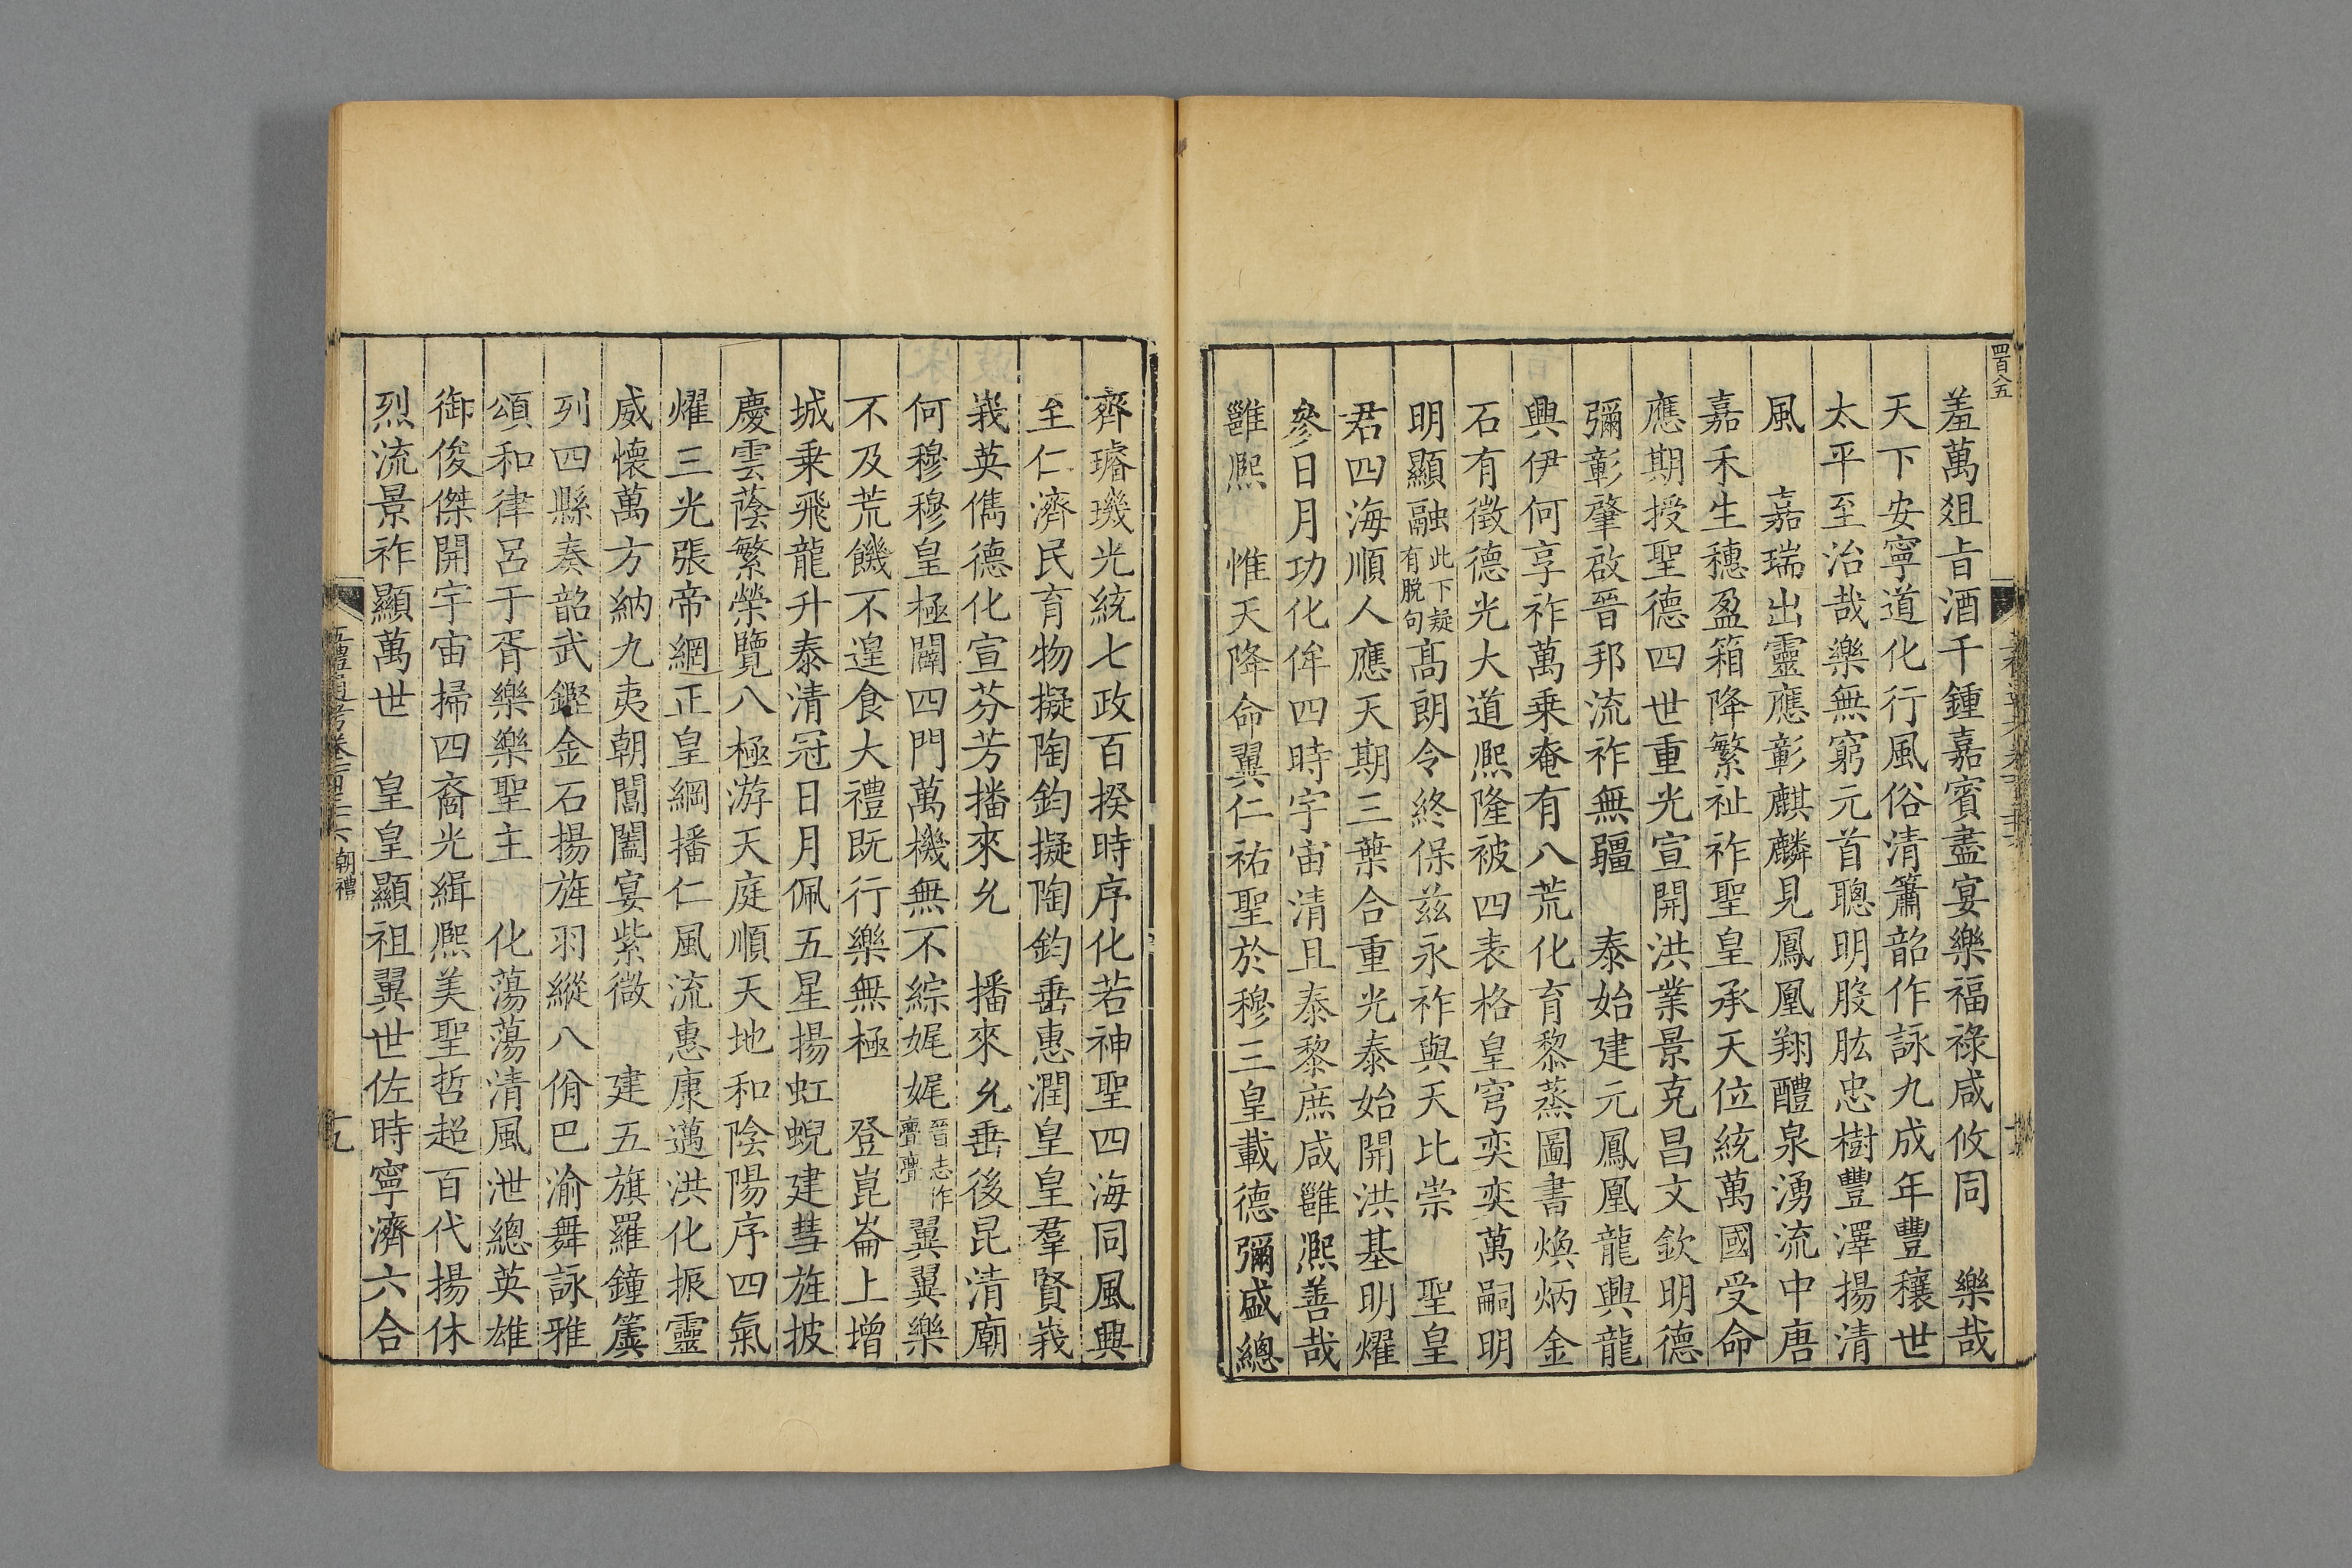 四百八五
羞萬爼㫖酒千鍾嘉賓盡宴樂福祿咸攸同　樂哉
天下安寧道化行風俗清簫韶作詠九成年豐穰世
太平至治哉樂無窮元首聰明股肱忠樹豐澤揚清
風　嘉瑞出靈應彰麒麟見鳳凰翔醴泉湧流中唐
嘉禾生穗盈箱降繁祉祚聖皇承天位統萬國受命
應期授聖德四世重光宣開洪業景克昌文欽明德
彌彰肇啟晉邦流祚無疆　泰始建元鳳凰龍興龍
興伊何享祚萬乗奄有八荒化育黎蒸圖書煥炳金
石有徵德光大道熙隆被四表格皇穹奕奕萬嗣明
明顯融此下疑有脱句髙朗令終保茲永祚與天比崇　聖皇
君四海順人應天期三葉合重光泰始開洪基明燿
參日月功化侔四時宇宙清且泰黎庶咸雝熙善哉
雝熙　惟天降命翼仁祐聖於穆三皇載德彌盛總
齊璿璣光統七政百揆時序化若神聖四海同風興
至仁濟民育物擬陶鈞擬陶鈞垂惠潤皇皇羣賢峩
峩英儁德化宣芬芳播來𠃔　播來𠃔垂後昆清廟
何穆穆皇極闢四門萬機無不綜娓娓晉志作亹亹翼翼樂
不及荒饑不遑食大禮既行樂無極　登崑崙上增
城乗飛龍升泰清冠日月佩五星揚虹蜺建彗旌披
慶雲蔭繁榮覽八極游天庭順天地和陰陽序四氣
燿三光張帝網正皇綱播仁風流惠康邁洪化振靈
威懷萬方納九夷朝閶闔宴紫微　建五旗羅鐘簴
列四縣奏韶武鏗金石揚旌羽縱八佾巴渝舞詠雅
頌和律呂于胥樂樂聖主　化蕩蕩清風泄總英雄
御俊傑開宇宙掃四裔光緝熙美聖哲超百代揚休
烈流景祚顯萬世　皇皇顯祖翼世佐時寧濟六合
五禮通考卷一百三十六　朝禮